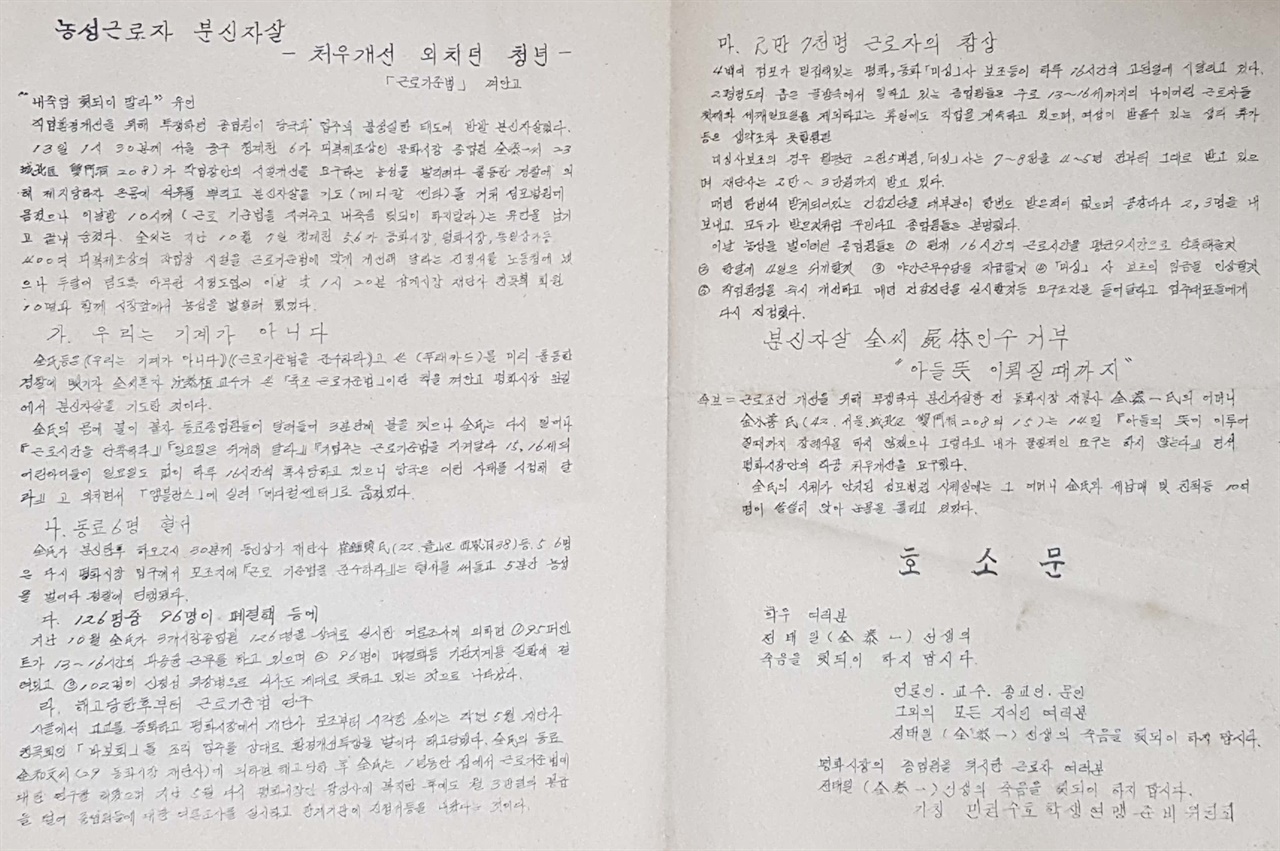 농성근로자 분신자살
- 처우개선 외치던 청년 -
「근로기준법」 껴안고
"내죽엄 헛되이 말라" 유언
작업환경개선을 위해 투쟁하던 종업원이 당국과 업주의 불성실한 태도에 반발 분신자살했다.
13일 1시 30분께 서울 중구 청계천 6가 피복제조상인 동화시장 종업원 全泰一씨 23
城北區 雙門洞 208)가 작업장안의 시설개선을 요구하는 농성을 벌리려다 출동한 경찰에 의
해 제지당하자 온몸에 석유를 뿌리고 분신자살을 기도 (메디칼 센타)를 거쳐 성모병원에
옮겼으나 이날밤 10시께 (근로 기준법을 지켜주고 내죽음 헛되이 하지말라)는 유언을 남기
고 끝내 숨졌다. 全씨는 지난 10월 7일 청계천 5,6가 동화시장, 평화시장, 통일상가등
400여 피복제조상의 작업장 시설을 근로기준법에 맞게 개선해 달라는 진정서를 노동청에 냈
으나 두달이 넘도록 아무런 시정도없어 이날 낮 1시 20분 삼계시장 재단사 친목회 회원
10명과 함께 시장앞에서 농성을 벌릴려 했었다.
가. 우리는 기계가 아니다
全氏등은《우리는 기계가 아니다》《근로기준법을 준수하라》고 쓴 (푸래카드)를 미리 출동한
경찰에 뺏기자 全씨혼자 沈泰植 교수가 쓴 「축조 근로기준법」이란 책을 껴안고 평화시장 앞길
에서 분신자살을 기도한 것이다.
全氏의 몸에 불이 붙자 동료종업원들이 달려들어 3분만에 불을 껐으나 全氏는 다시 일어나
『근로시간을 단축하라』『일요일은 쉬게해 달라』『기업주는 근로기준법을 지켜달라 15, 16세의
어린아이들이 일요일도 없이 하루 16시간씩 혹사당하고 있으니 당국은 이런 사태를 시정해 달
라』고 외치면서 「앰블란스」에 실려 「메디컬센터」로 옮겨졌다.
나. 동료6명 혈서
全氏가 분신한후 하오2시 30분께 통신상가 재단사 崔鍾寅氏(22. 38)등. 5 6명
은 다시 평화시장 입구에서 모조지에 『근로 기준법을 준수하라』는 혈서를 써들고 5분간 농성
을 벌이다 경찰에 연행됐다.
다. 126명중 96명이 폐결핵 등에
지난 10월 全氏가 3개시장종업원 126명을 상대로 실시한 여론조사에 의하면 ① 95퍼센
트가 13~16시간의 과중한 근무를 하고 있으며 ② 96명이 폐결핵등 기관지계통 질환에 걸
려있고 ③ 102명이 신경성 위장병으로 식사도 제대로 못하고 있는 것으로 나타났다.
라. 해고당한후부터 근로기준법 연구
시골에서 고교를 중퇴하고 평화시장에서 재단사 보조부터 시작한 全씨는 작년 5월 재단사
친목회인 「바보회」를 조직 업주를 상대로 환경개선투쟁을 벌이다 해고당했다. 全氏의 동료
(29 동화시장 재단사)에 의하면 해고당한 후 全氏는 1년동안 집에서 근로기준법에
대한 연구를 해왔으며 지난 9월 다시 평화시장안 복직한 후에도 월 3만원의 봉급
을 털어 종업원들에 대한 여론조사를 실시하고 관계기관에 진정서등을 냈다는 것이다.
마. 2만 7천명 근로자의 참상
4백여 점포가 밀집해있는 평화, 동화 「미싱」사 보조등이 하루 16시간의 고된일에 시달리고 있다.
2평정도의 좁은 골방속에서 일하고 있는 종업원들은 주로 13~16세까지의 나이어린 근로자들
첫째와 세째일요일을 제외하고는 휴일에도 작업을 계속하고 있으며, 여성이 받을수 있는 생리 휴가
등은 생각조차 못할형편
미싱사보조의 경우 월평균 2천5백원, 「미싱」사는 7~8천을 4~5년 전부터 그대로 받고 있으
며 재단사는 2만~3만원까지 받고 있다.
매년 한번씩 받게되어있는 건강진단을 대부분이 한번도 받은적이 없으며 공장마다 2, 3명을 내
보내고 모두가 받은것처럼 꾸민다고 종업원들은 분개했다.
이날 농성을 벌이려던 종업원들은 ① 현재 16시간의 근로시간을 평균9시간으로 단축해줄것
② 한달에 4일은 쉬게할것 ③ 야간근무수당을 지급할것 ④ 「미싱」사 보조의 임금을 인상할것
⑤ 작업환경을 즉시 개선하고 매년 건강진단을 실시할것등 요구조건을 들어달라고 업주대표들에게
다시 진정했다.
분신자살 全씨 屍体인수 거부
"아들뜻 이뤄질때까지"
속보 = 근로조건 개선을 위해 투쟁하다 분신자살한 전 동화시장 재봉사 全泰一氏의 어머니
金小善氏(42. 서울.城北區 雙門洞 208의 15)는 14일 『아들의 뜻이 이루어
질때까지 장례식을 하지 않겠으나 그렇다고 내가 물질적인 요구는 하지 않는다』면서
평화시장안의 직공 처우개선을 요구했다.
全氏의 시체가 안치된 성모병원 시체실에는 그 어머니 金氏와 세남매 및 친척등 10여
명이 쓸쓸히 앉아 눈물을 흘리고 있었다.
호 소 문
학우 여러분
전태일(全泰一) 선생의
죽음을 헛되이 하지 맙시다.
언론인 · 교수 · 종교인 · 문인
그외의 모든 지식인 여러분
전태일 (全泰一) 선생의 죽음을 헛되이 하지 맙시다.
평화시장의 종업원을 위시한 근로자 여러분
전태일 (全泰一) 선생의 죽음을 헛되이 하지 맙시다.
가칭 민권수호 학생연맹 준비 위원회